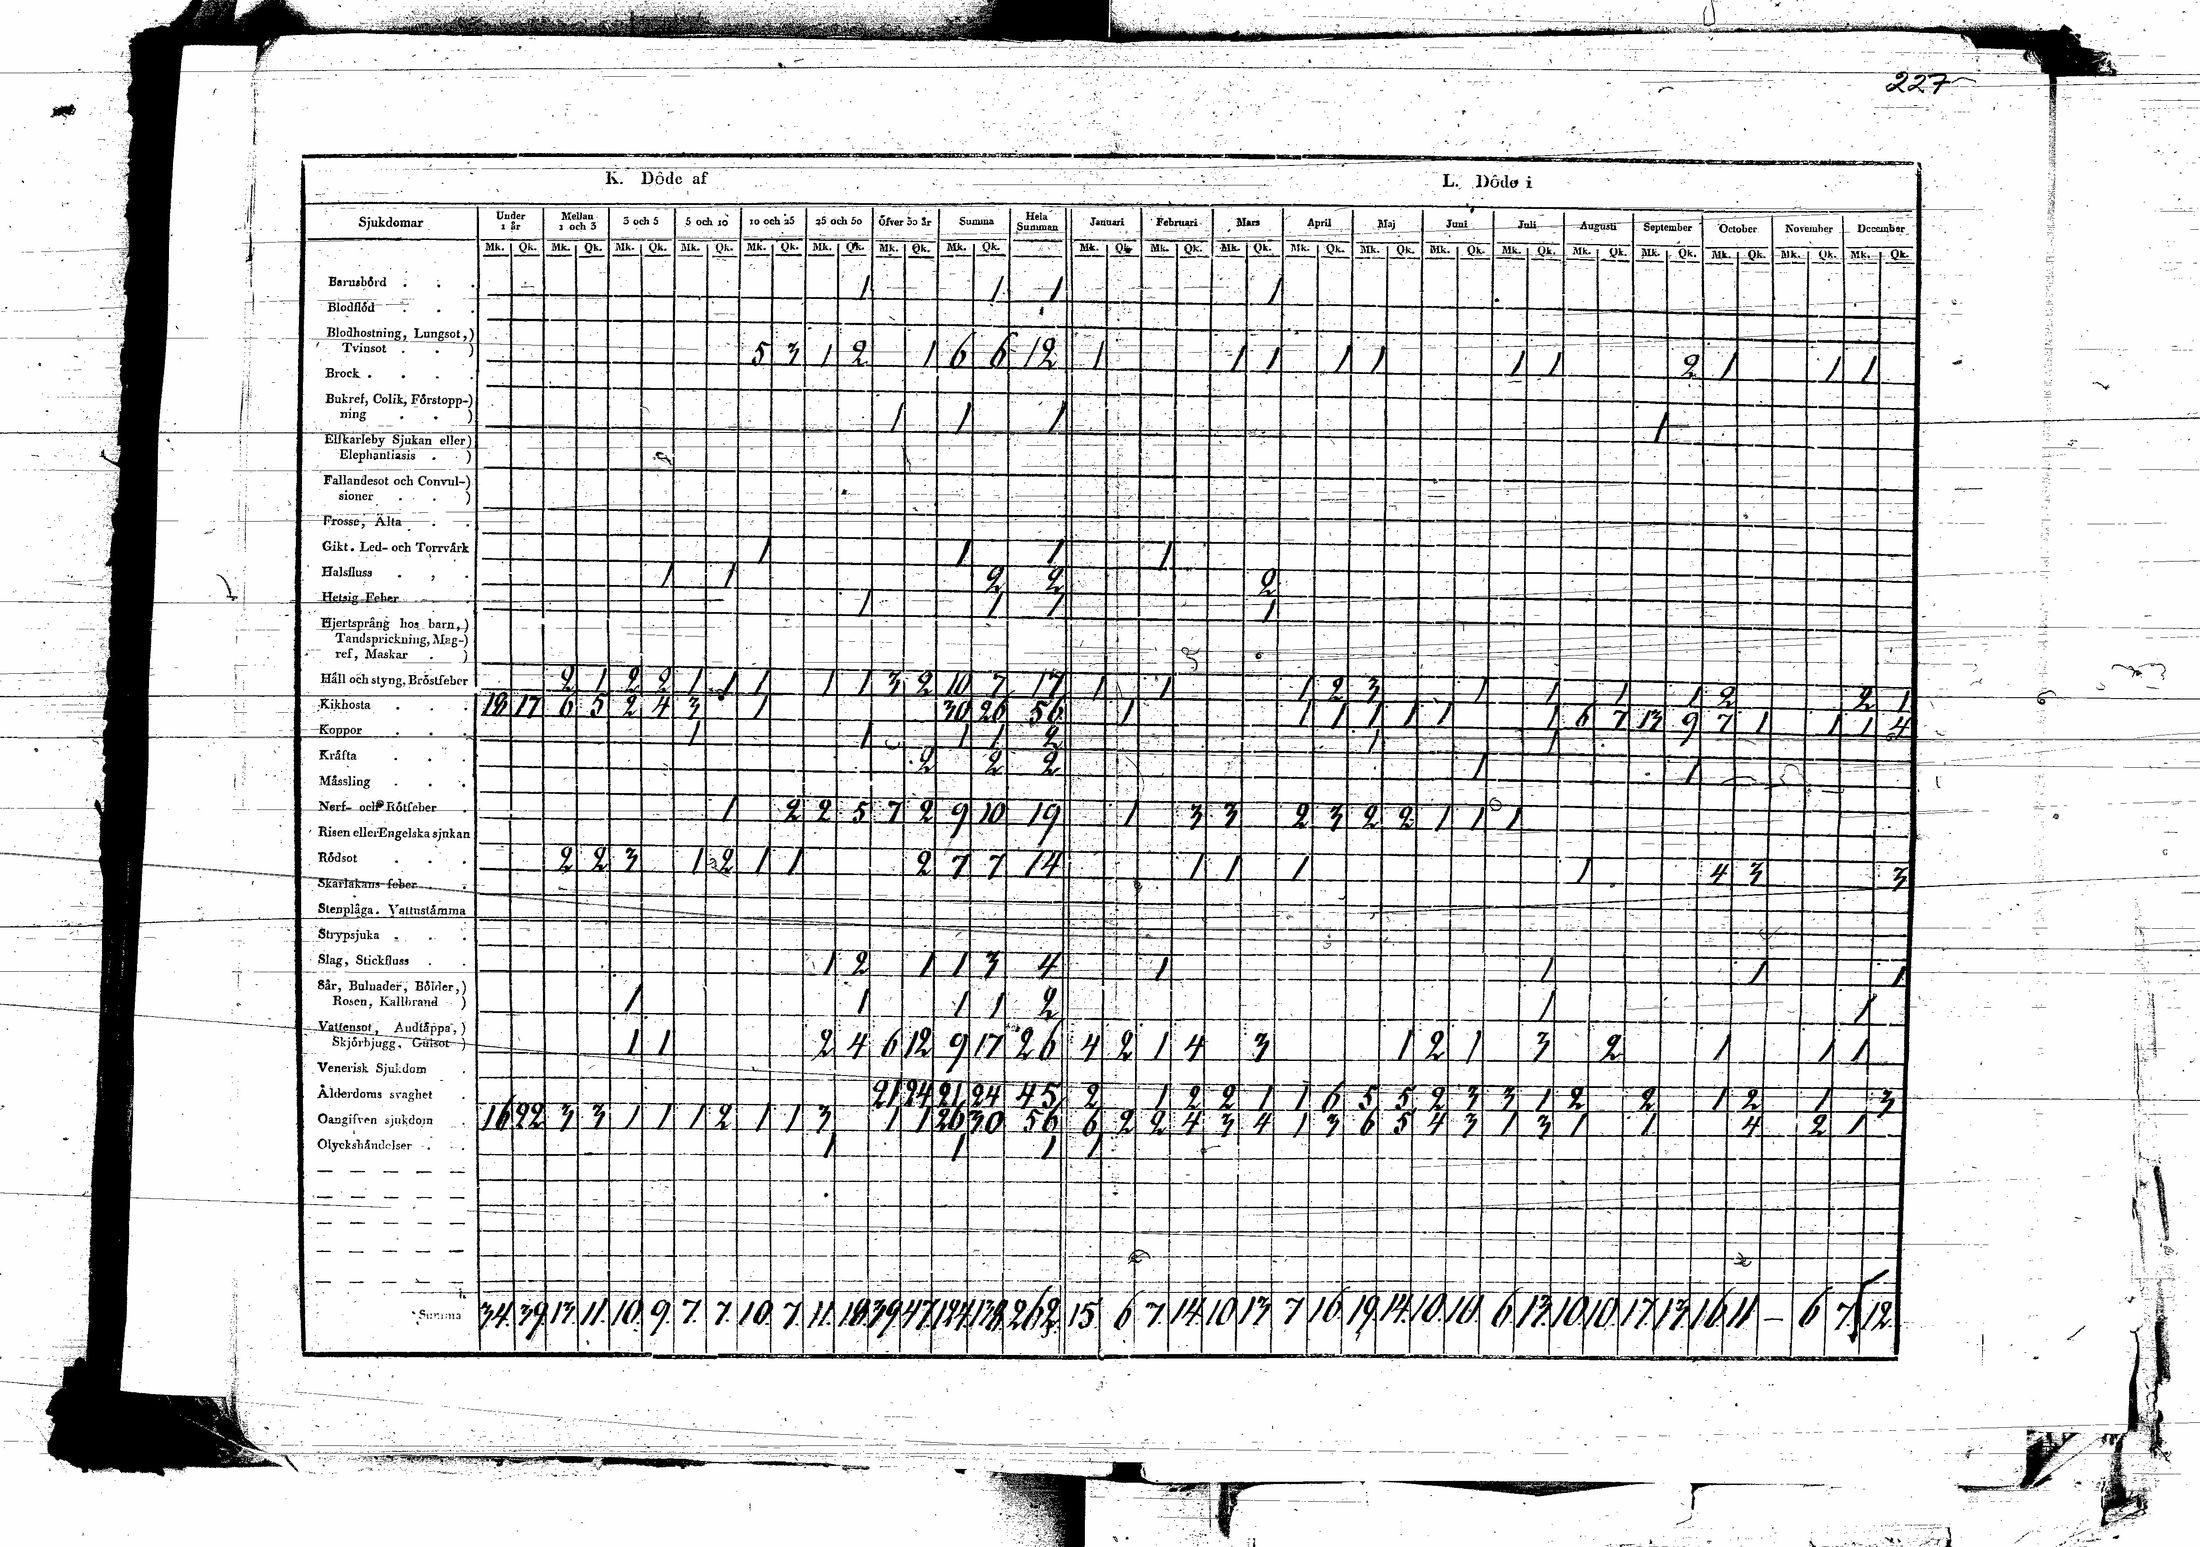 227
K. Döde af L. Döde i
Sjukdomar Under 1 år Mellan 1 och 3 3 och 5 5 och 10 10 och 25 25 och 50 Öfver 50 år Summa Hela Summan Januari Februari Mars April Maj Juni Juli Augusti September October November December
Mk. Qk. Mk. Qk. Mk. Qk. Mk. Qk. Mk. Qk. Mk. Qk. Mk. Qk. Mk. Qk. Mk. Qk. Mk. Qk. Mk. Qk. Mk. Qk. Mk. Qk. Mk. Qk. Mk. Qk. Mk. Qk. Mk. Qk. Mk. Qk. Mk. Qk. Mk. Qk.
Barnsbörd . . . 1 1 1 1
Blodflöd . . .
Blodhostning, Lungsot,)
Tvinsot . . ) 5 3 1 2 1 6 6 12 1 1 1 1 1 1 1 2 1 1 1
Brock . . . .
Bukref, Colik, Förstopp-)
ning . . ) 1 1 1 1
Elfkarleby Sjukan eller)
Elephantiasis . )
Fallandesot och Convul-)
sioner . . )
Frossa, Älta . .
Gikt. Led- och Torrvärk 1 1 1 1
Halsfluss . , . 1 1 2 2 2
Hetsig Feber 1 1 1 1
Hjertsprång hos barn,)
Tandsprickning, Mag-)
ref, Maskar . )
Håll och styng, Bröstfeber 2 1 2 2 1 1 1 1 1 3 2 10 7 17 1 1 1 2 3 1 1 1 1 2 2 1
Kikhosta . . . 18 17 6 5 2 4 3 1 30 26 56 1 1 1 1 1 1 1 6 7 13 9 7 1 1 1 4
Koppor . . . 1 1 1 1 2 1 1
Kräfta . . . 2 2 2 1 1
Mässling . . .
Nerf- och Rötfeber . 1 2 2 5 7 2 9 10 19 1 3 3 2 3 2 2 1 1 1
Risen eller Engelska sjukan
Rödsot . . . 2 2 3 1 2 1 1 2 7 7 14 1 1 1 1 4 3 3
Skarlakans feber . .
Stenplåga. Vattustämma
Strypsjuka . . .
Slag, Stickfluss . . 1 2 1 1 3 4 1 1 1 1
Sår, Bulnader, Bölder,)
Rosen, Kallbrand ) 1 1 1 1 2 1 1
Vattensot, Andtäppa,)
Skjörbjugg. Gulsot ) 1 1 2 4 6 12 9 17 26 4 2 1 4 3 1 2 1 3 2 1 1 1
Venerisk Sjukdom .
Ålderdoms svaghet . 21 24 21 24 45 2 1 2 2 1 1 6 5 5 2 3 3 1 2 2 1 2 1 3
Oangifven sjukdom . 16 22 3 3 1 1 1 2 1 1 3 1 1 26 30 56 6 2 2 4 3 4 1 3 6 5 4 3 1 3 1 1 4 2 1
Olyckshändelser . . 1 1 1 1
Summa 34. 39. 13. 11. 10. 9. 7. 7. 10. 7. 11. 18. 39. 47. 124. 138. 262. 15. 6. 7. 14. 10. 13. 7. 16. 19. 14. 10. 10. 6. 13. 10. 10. 17. 13. 16. 11. — 6. 7. 12.